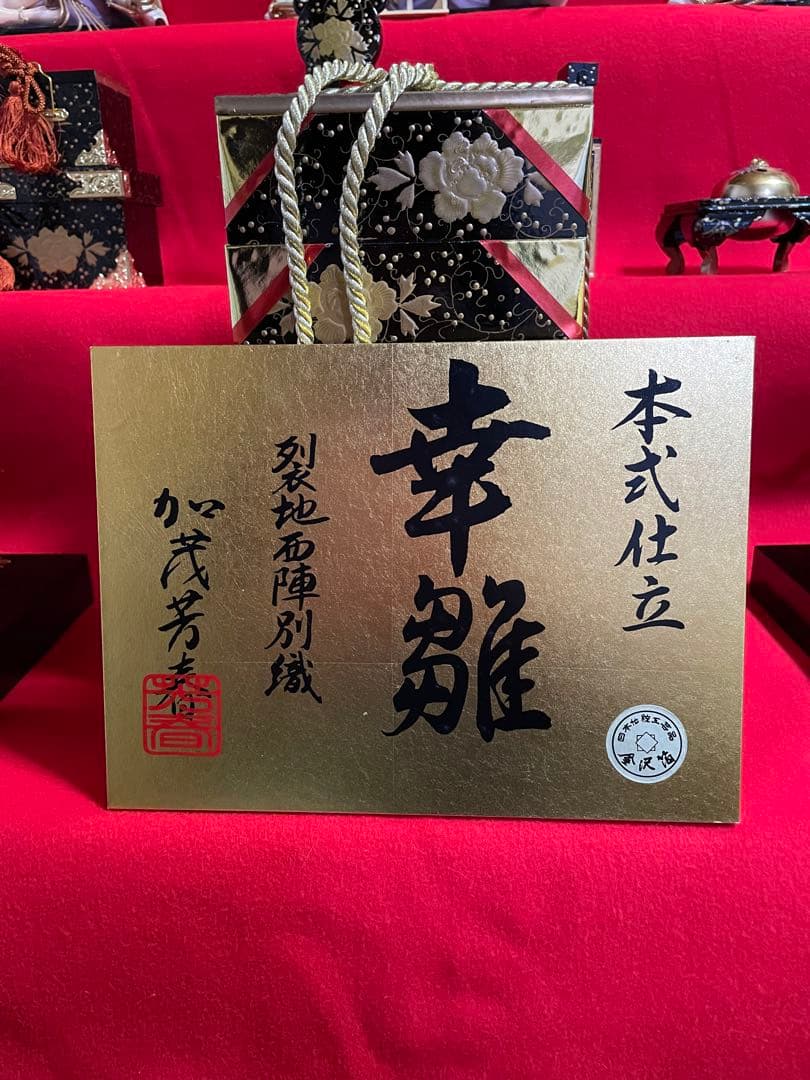 本式仕立
幸雛
裂地西陣別織
加茂芳春
芳春
日本伝統工芸品
金沢箔